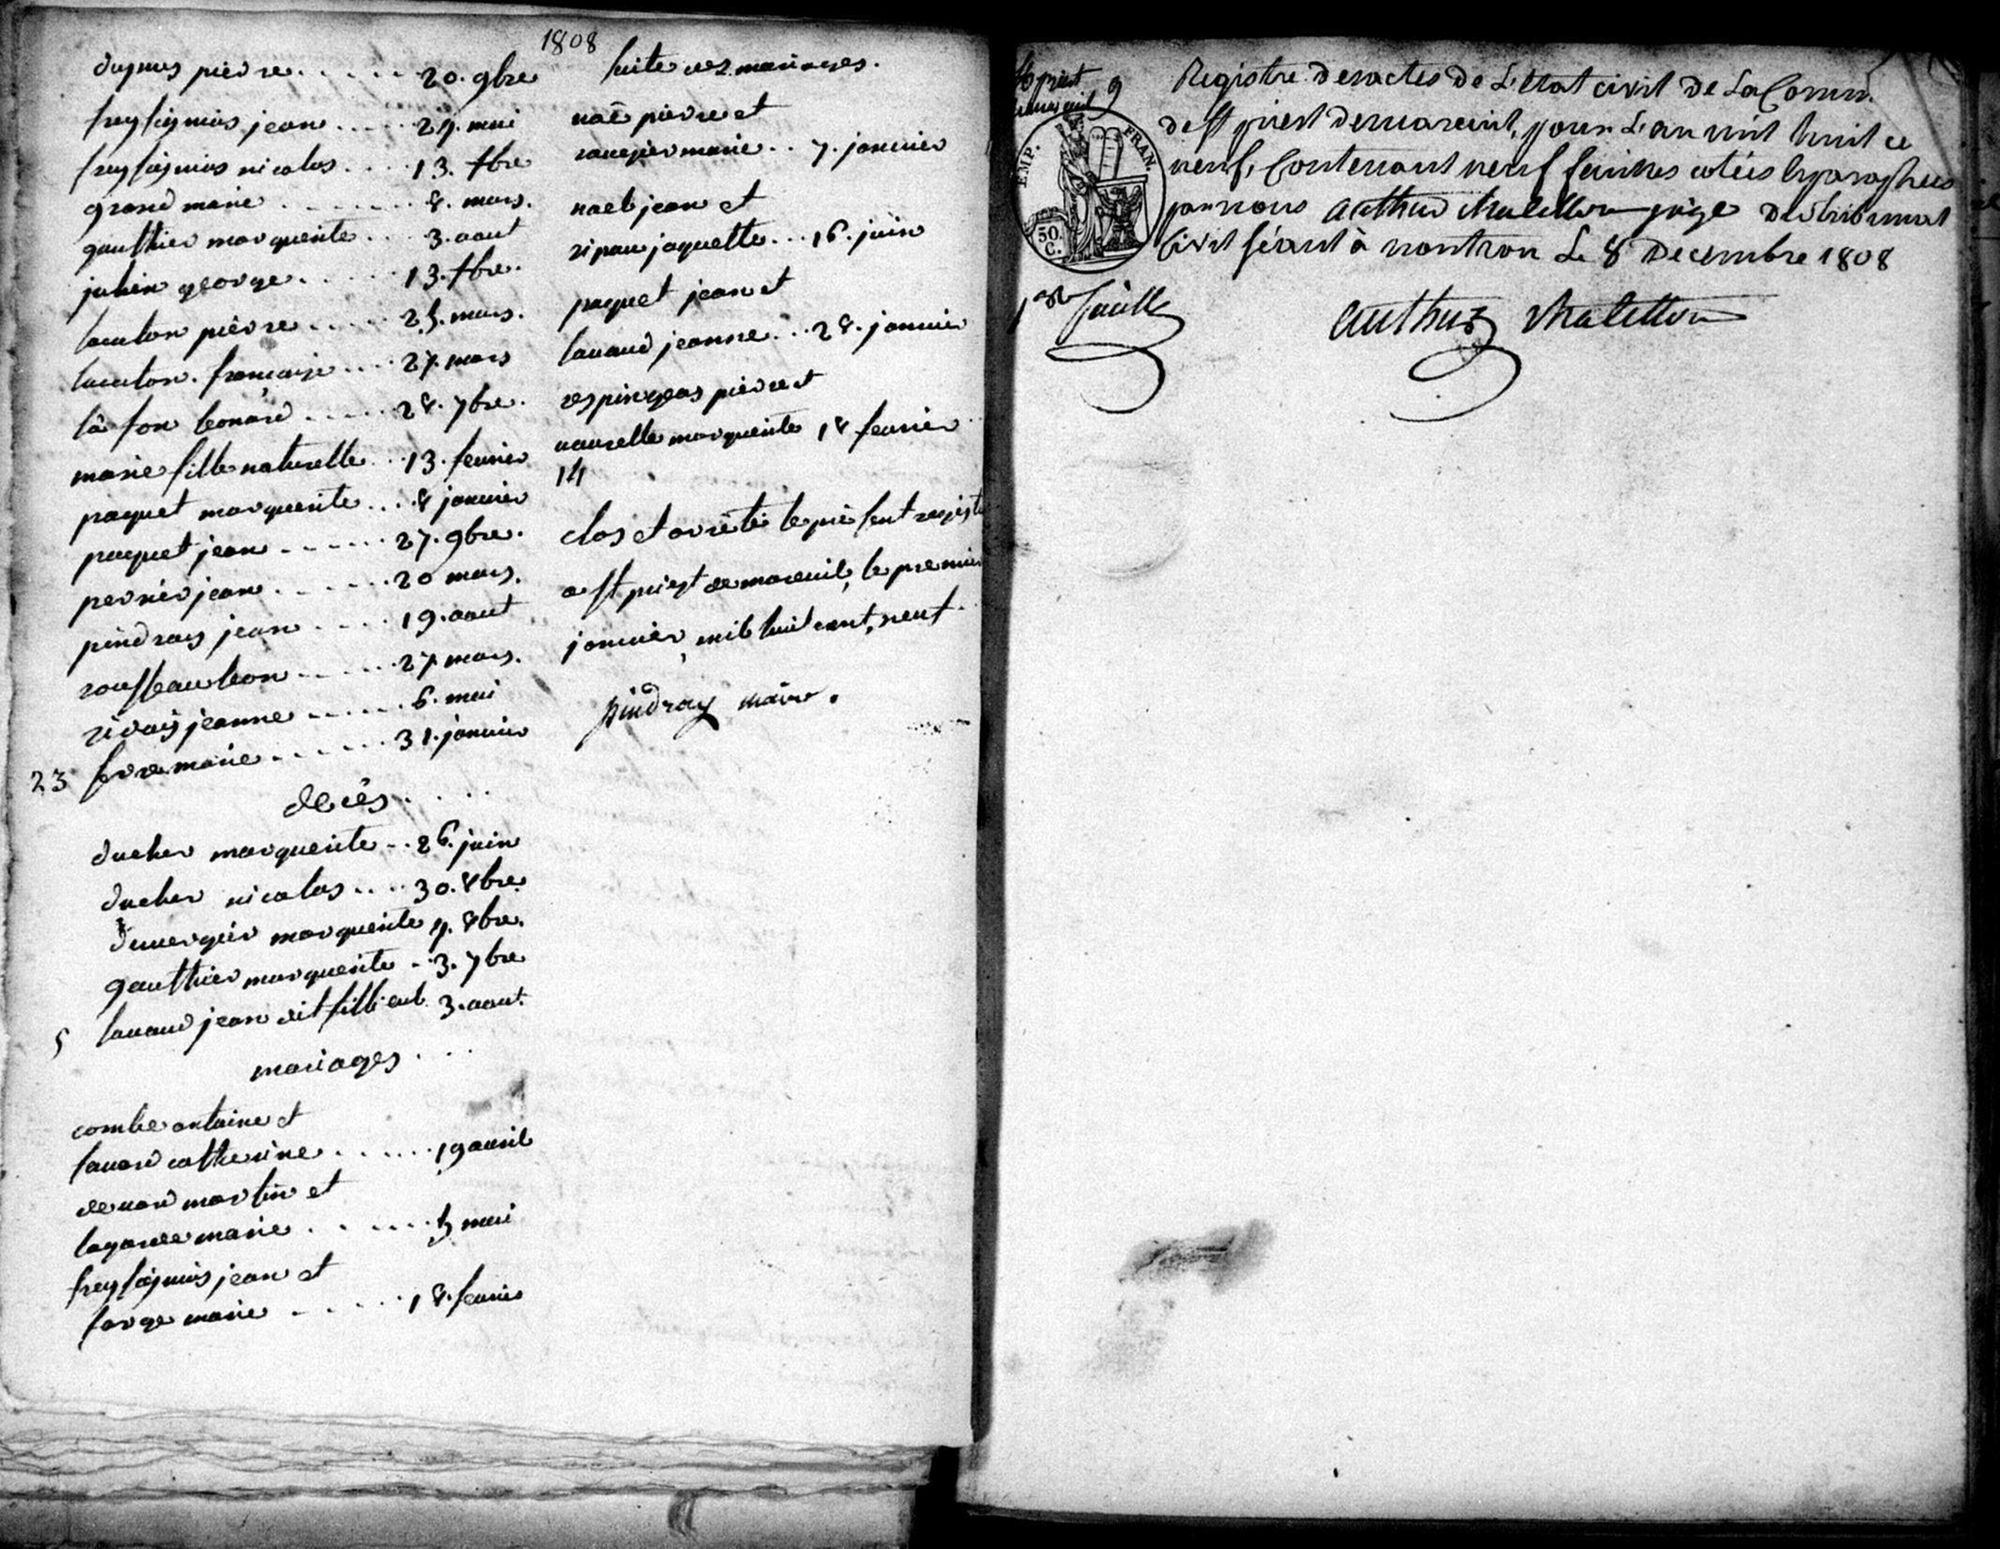 1808
dupuis pierre . . . . . 20. 9bre
freyssignas jean . . . . 29. mai
freyssignas nicolas . . . . 13. 7bre
grand marie . . . . . . . 8. mars.
gauthier marguerite . . . 3. aout
julien george . . . . . 13. 7bre.
laculon pierre . . . . . 25. mars.
laculon françoise . . . 27. mars
la fon leonard . . . . . 28. 7bre.
marie fille naturelle . . 13. fevrier
paquet marguerite . . . 8 janvier
paquet jean . . . . . . 27. 9bre.
pervier jean . . . . . . 20 mars.
pindray jean . . . . . 19. aout
rousseau leon . . . . . 27 mars.
jeanne . . . . . . 6. mai
23 marie . . . . . . . 31. janvier
décès . . . .
ducher marguerite . . 26. juin
ducher nicolas . . . . 30. 8bre
duvergier marguerite 8bre.
gauthier marguerite . . 3. 7bre
5 lavaud jean dit filleul 3. aout.
mariages . . .
combe antoine et
favard catherine . . . . . . 19 avril
martin et
lagarde marie . . . . . . mai
freyssignas jean et
farge marie . . . . . . 18. fevrier
suite des mariages.
pierre et
marie . . 7. janvier
naeb jean et
ripau jaquette . . . 16. juin
paquet jean et
lavaud jeanne . . . 28. janvier
pierre et
marguerite 18 fevrier
14
clos et arrêté le présent
a St priest de mareuil, le premier
janvier, mil huit cent, neuf.
pindray maire.
St priest
mareuil 9
EMP. FRAN.
50 C.
Registre des actes de L'état civil de La Comm.
de St priest de mareuil, pour L'an mil huit ce
neuf, Contenant neuf feuilles cotées & paraphées
par nous Arthur Maletton juge du tribunal
Civil séant à nontron Le 8 Decembre 1808
1ere feuille
Arthur Maletton